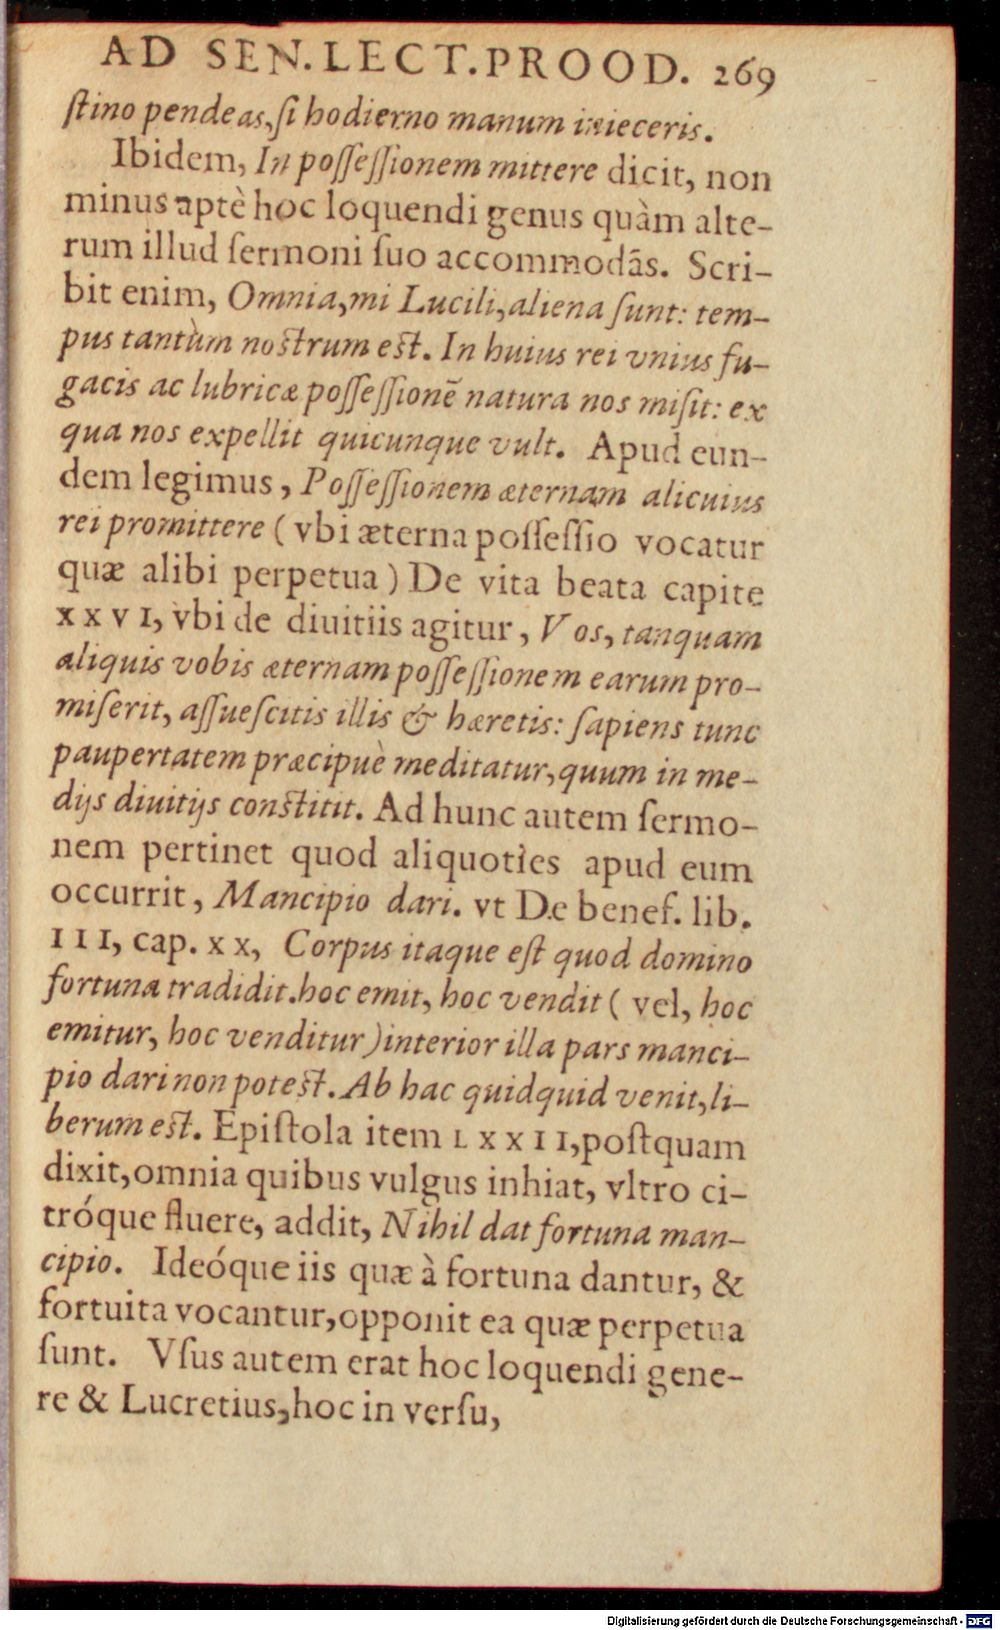 AD SEN. LECT. PROOD. 269
ſtino pendeas, ſi hodierno manum inieceris.
Ibidem, In poſſeſſionem mittere dicit, non
minus aptè hoc loquendi genus quàm alte-
rum illud ſermoni ſuo accommodãs. Scri-
bit enim, Omnia, mi Lucili, aliena ſunt: tem-
pus tantùm noſtrum eſt. In huius rei vnius fu-
gacis ac lubricæ poſſeſſionē natura nos miſit: ex
qua nos expellit quicunque vult. Apud eun-
dem legimus, Poſſeſſionem æternam alicuius
rei promittere ( vbi æterna poſſeſſio vocatur
quæ alibi perpetua ) De vita beata capite
XXVI, vbi de diuitiis agitur, Vos, tanquam
aliquis vobis æternam poſſeſſionem earum pro-
miſerit, aſſueſcitis illis & hæretis: ſapiens tunc
paupertatem præcipuè meditatur, quum in me-
dijs diuitijs conſtitit. Ad hunc autem ſermo-
nem pertinet quod aliquoties apud eum
occurrit, Mancipio dari. vt De benef. lib.
III, cap. XX, Corpus itaque eſt quod domino
fortuna tradidit. hoc emit, hoc vendit ( vel, hoc
emitur, hoc venditur ) interior illa pars manci-
pio dari non poteſt. Ab hac quidquid venit, li-
berum eſt. Epiſtola item LXXII, poſtquam
dixit, omnia quibus vulgus inhiat, vltro ci-
tróque fluere, addit, Nihil dat fortuna man-
cipio. Ideóque iis quæ à fortuna dantur, &
fortuita vocantur, opponit ea quæ perpetua
ſunt. Vſus autem erat hoc loquendi gene-
re & Lucretius, hoc in verſu,
Digitalisierung gefördert durch die Deutsche Forschungsgemeinschaft - DFG